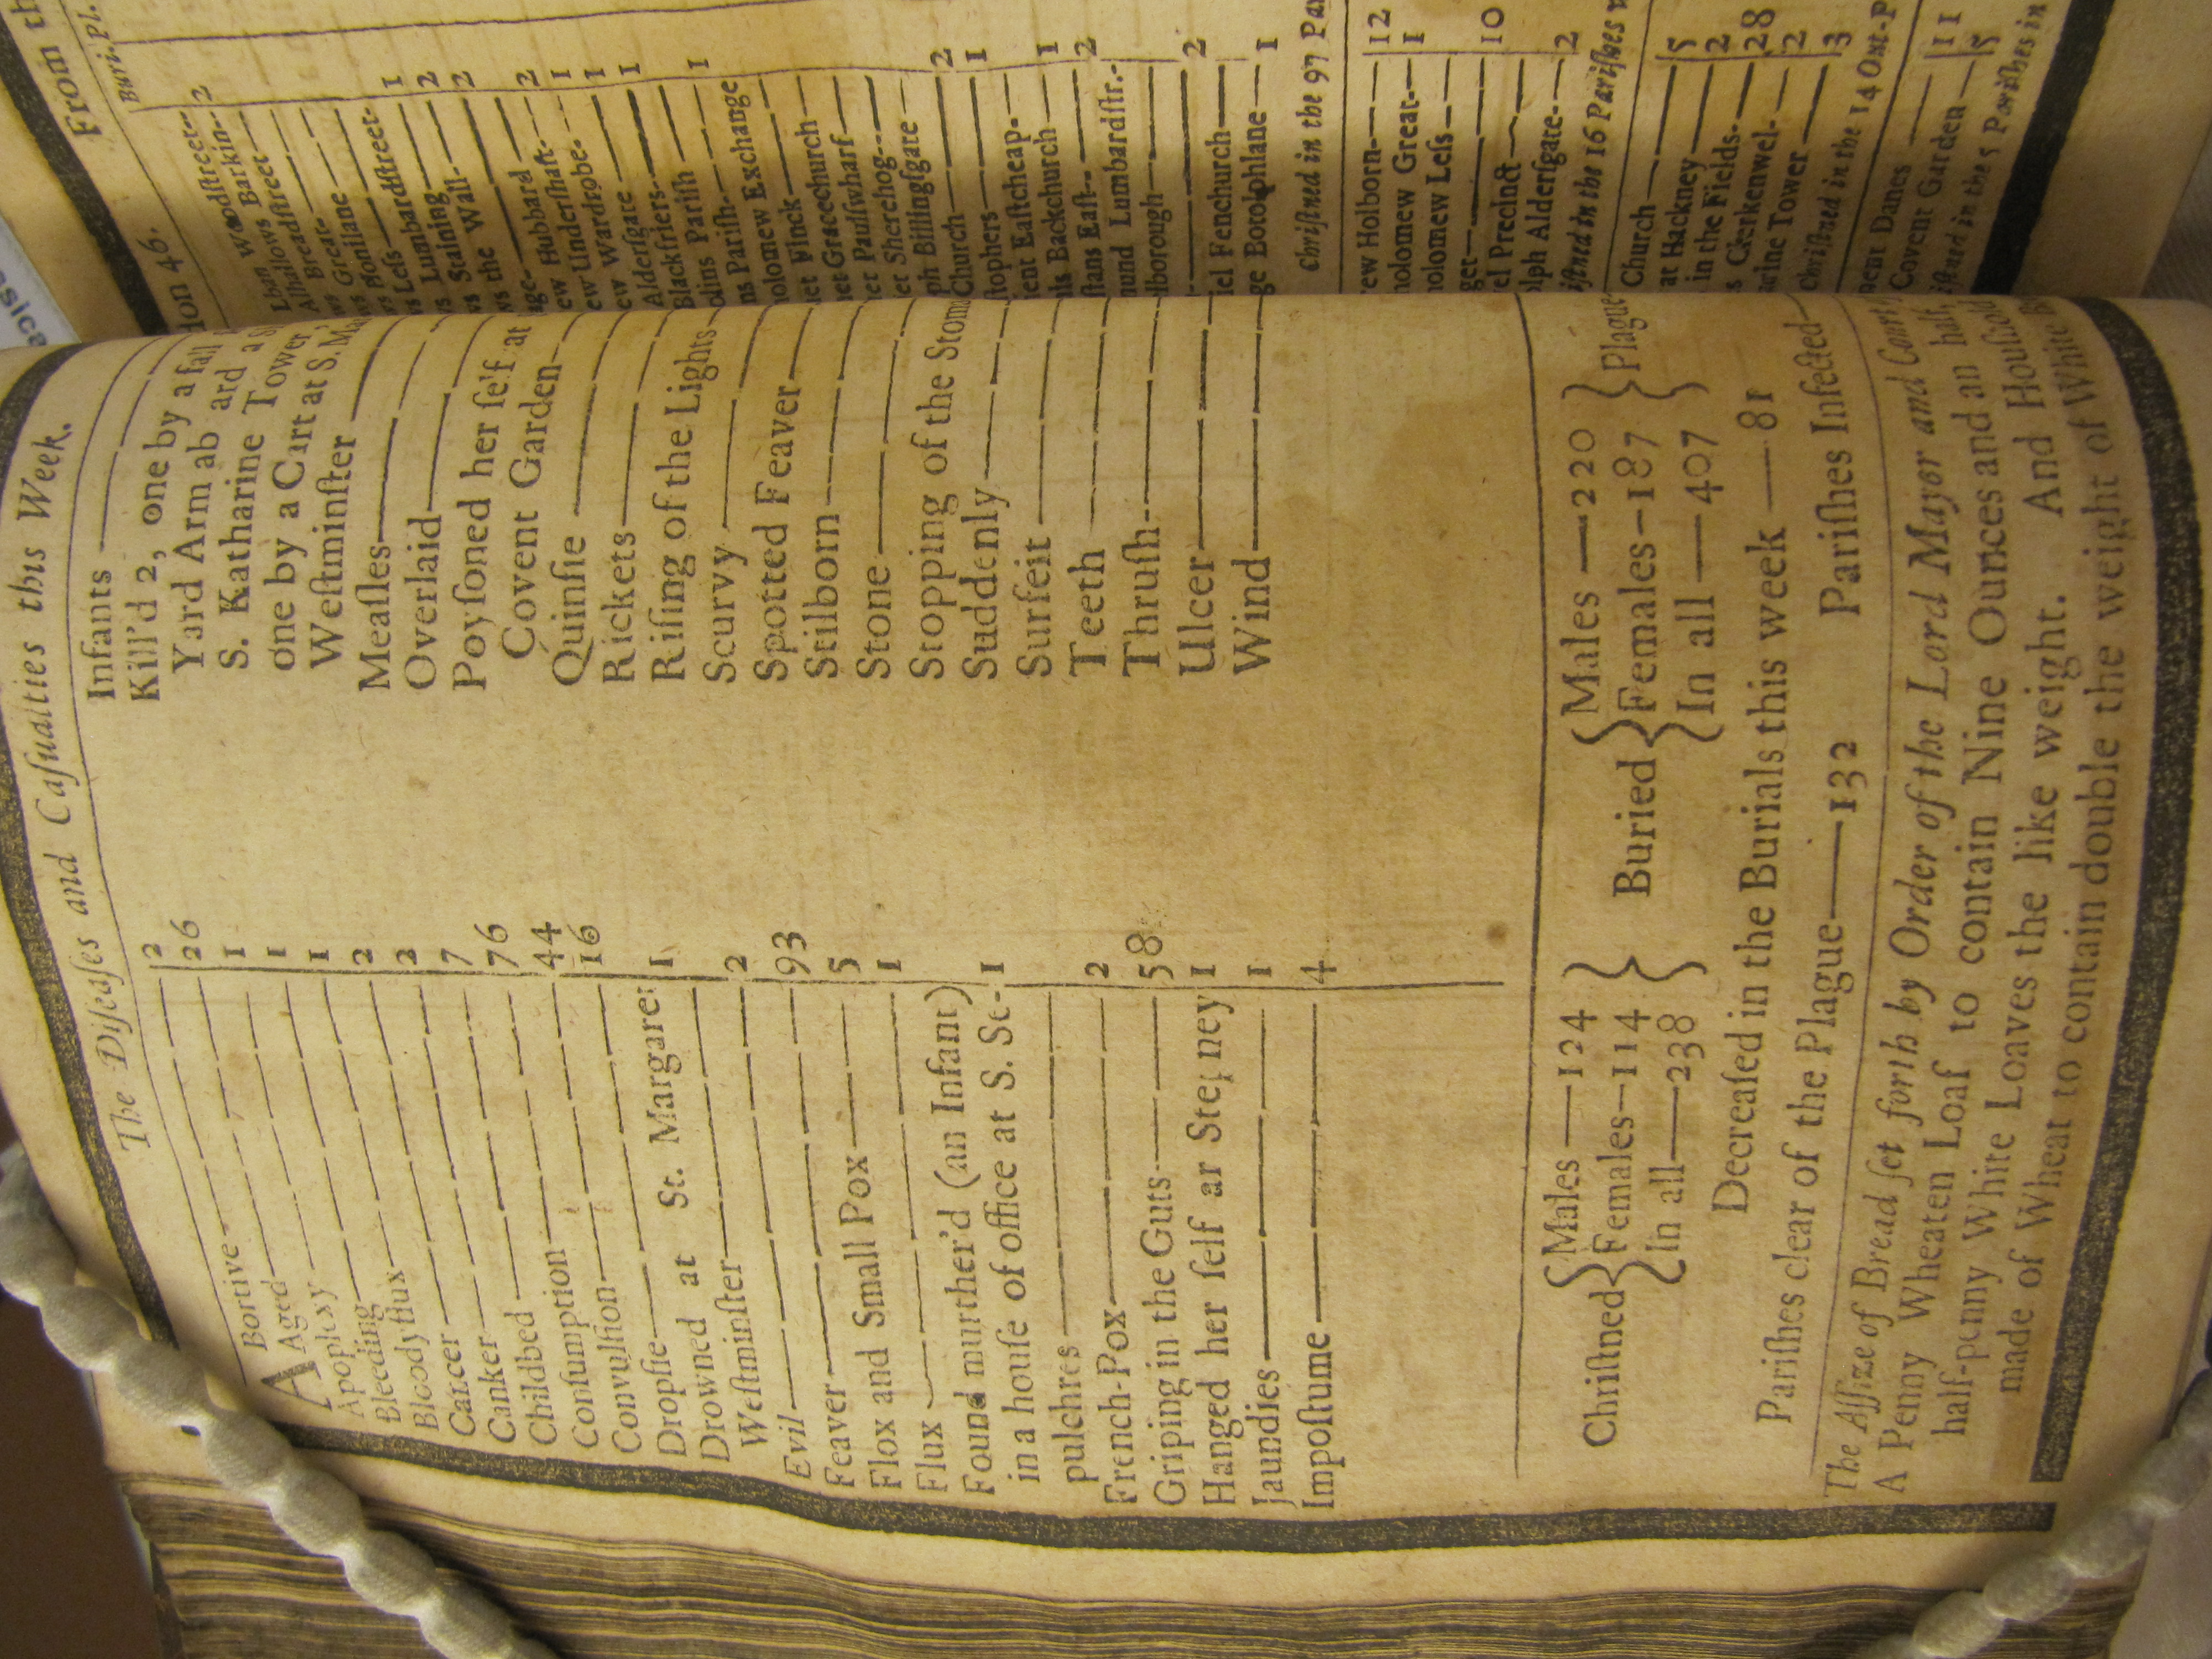 The Diseaſes and Caſualties this Week.
ABortive 2
Aged 26
Apoplexy 1
Bleeding 1
Bloodyflux 1
Cancer 2
Canker 2
Childbed 7
Conſumption 76
Convulſion 44
Dropſie 16
Drowned at St. Margaret 1
Weſtminſter
Evil 2
Feaver 93
Flox and Small Pox 5
Flux 1
Found murther'd (an Infant)
in a houſe of office at S. Se- 1
pulchres
French-Pox 2
Griping in the Guts 58
Hanged her ſelf at Stepney 1
Jaundies 1
Impoſtume 4
Infants
Kill'd 2, one by a fall
Yard Arm aboard a
S. Katharine Tower
one by a Cart at S. Ma
Weſtminſter
Meaſles
Overlaid
Poyſoned her ſelf at
Covent Garden
Quinſie
Rickets
Riſing of the Lights
Scurvy
Spotted Feaver
Stilborn
Stone
Stopping of the Stom
Suddenly
Surfeit
Teeth
Thruſh
Ulcer
Wind
Chriſtned { Males — 124 Females — 114 In all — 238 }
Buried { Males — 220 Females — 187 In all — 407 } Plague
Decreaſed in the Burials this week — 81
Pariſhes clear of the Plague — 132 Pariſhes Infected
The Aſſize of Bread ſet forth by Order of the Lord Mayor and Court
A Penny Wheaten Loaf to contain Nine Ounces and an half
half-penny White Loaves the like weight. And Houſhold
made of Wheat to contain double the weight of White
From th
Buri. Pl.
don 46.
lban Woodſtreet
lhallows Barkin 2
Alhallows Breadſtreet
Great
ws Honilane
ws Leſs
ws Lumbardſtreet 1
ws Staining 2
ws the Wall 2
ew Hubbard 2
ew Underſhaft 1
ew Wardrobe 1
Alderſgate 1
Blackfriers
olins Pariſh 1
ns Pariſh
olomew Exchange
et Finck
et Gracechurch
et Paulſwharf
et Sherehog
ph Billingſgate
Church 2
ſtophers 1
ent Eaſtcheap
is Backchurch 1
ſtans Eaſt 2
mund Lumbardſtr.
lborough
2
iel Fenchurch
ge Botolphlane 1
Chriſtned in the 97 Pa
ew Holborn 12
holomew Great 1
holomew Leſs
get
el Precinct 10
lph Alderſgate 2
iſtned in the 16 Pariſhes
Church 5
at Hackney 2
in the Fields 28
s Clerkenwel 2
arine Tower 3
Chriſtned in the 14 Out-P
ment Danes 11
Covent Garden 5
iſtned in the 5 Pariſhes in